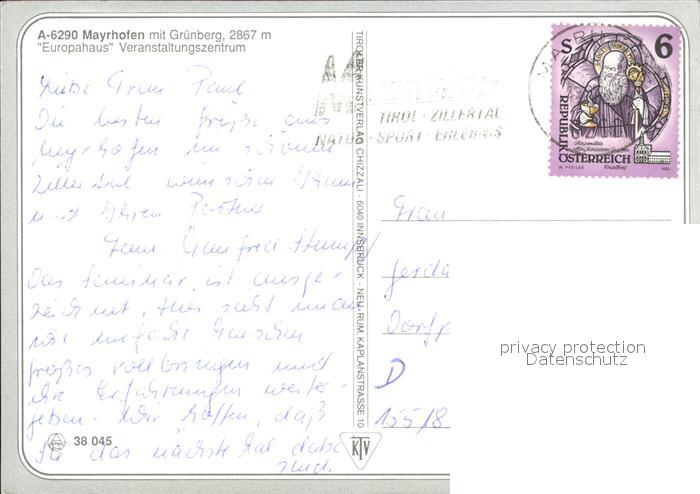 A-6290 Mayrhofen mit Grünberg, 2867 m
"Europahaus" Veranstaltungszentrum
Liebe Frau Paul
Die besten Grüße aus
Mayrhofen im schönen
Zillertal wünschen Ihnen
und Ihrem Partner
Fam. Manfred
Das Seminar ist ausge-
zeichnet, hier sieht man
wie einfache Menschen
großes vollbringen und
ihre Erfahrungen weiter-
geben. Wir hoffen, daß
Sie das nächste Mal dabei
sind.
38 045
TIROLER KUNSTVERLAG CHIZZALI · 6040 INNSBRUCK - NEU-RUM, KAPLANSTRASSE 10
KTV
TIROL - ZILLERTAL
NATUR - SPORT - ERLEBNIS
S 6
REPUBLIK
ÖSTERREICH
Frau
Gerda
Dorfp
D
155/8
privacy protection
Datenschutz